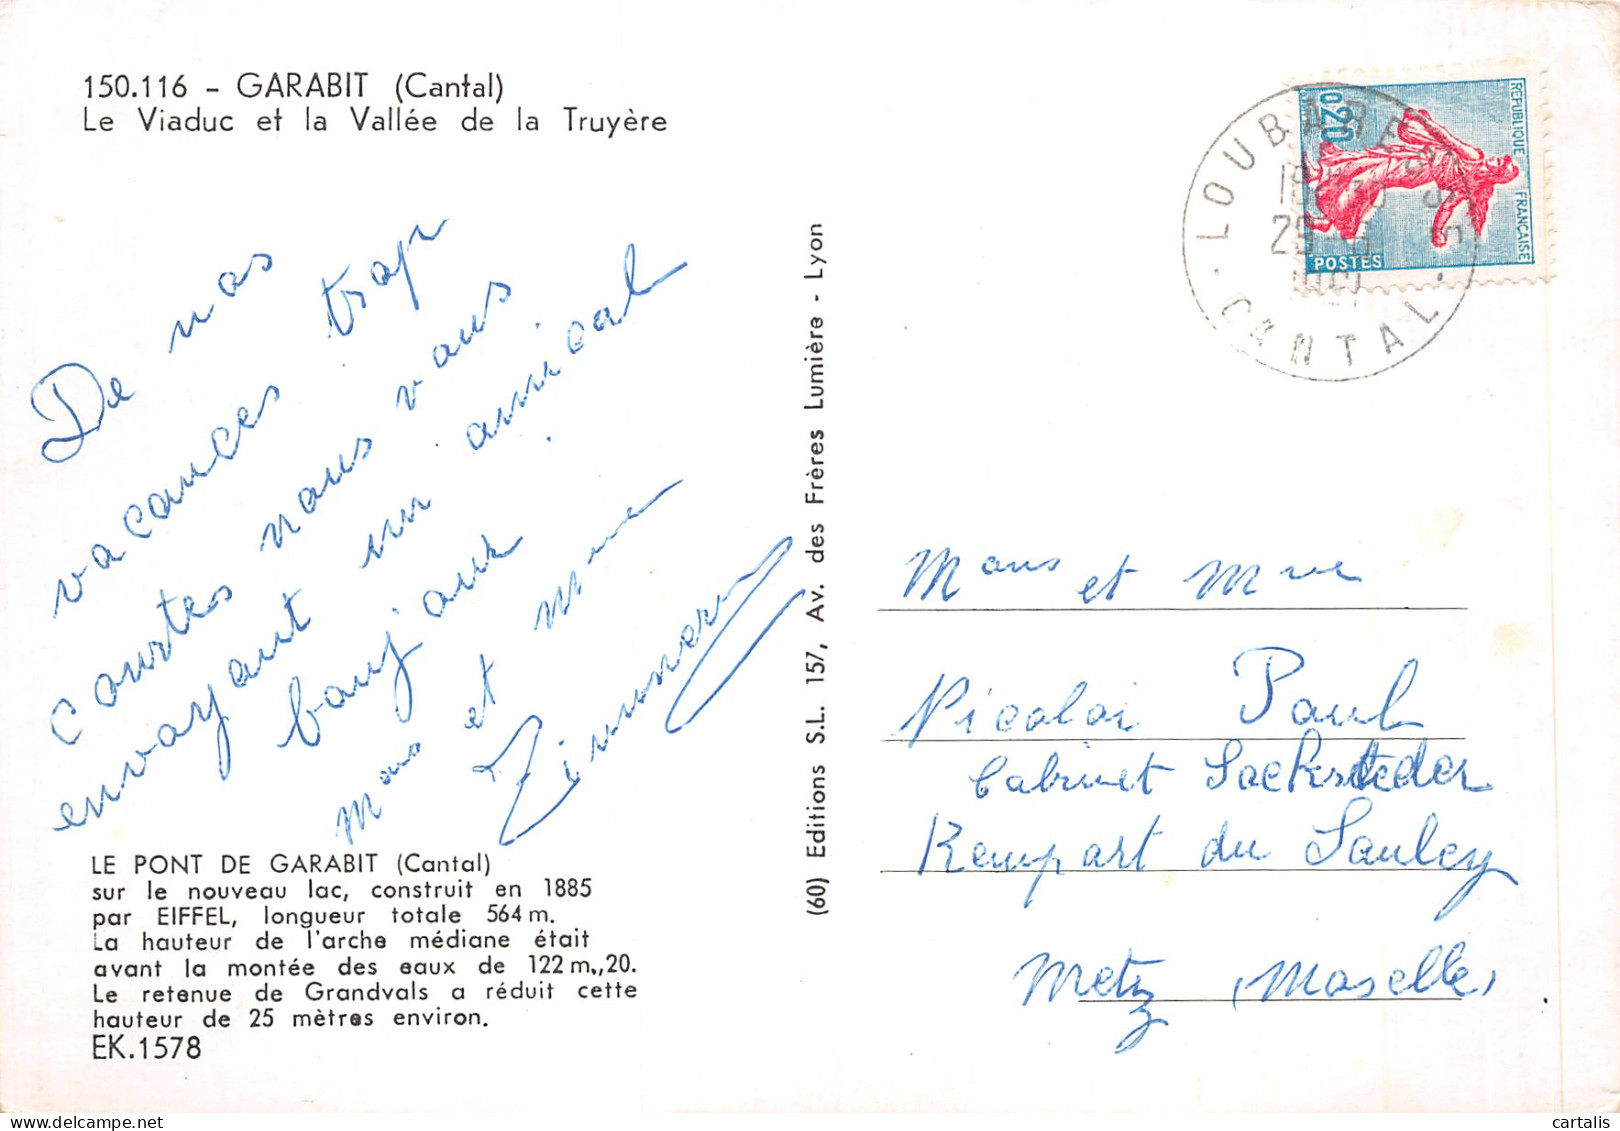 150.116 - GARABIT (Cantal)
Le Viaduc et la Vallée de la Truyère
De nos
vacances trop
courtes nous vous
envoyant un amical
bonjour
Mons et Mme
Zimmer
LE PONT DE GARABIT (Cantal)
sur le nouveau lac, construit en 1885
par EIFFEL, longueur totale 564 m.
La hauteur de l'arche médiane était
avant la montée des eaux de 122 m.,20.
Le retenue de Grandvals a réduit cette
hauteur de 25 mètres environ.
EK.1578
(60) Editions S.L. 157, Av. des Frères Lumière - Lyon
LOUBARESSE
CANTAL
0,20
REPUBLIQUE FRANÇAISE
POSTES
Mons et Mme
Nicolai Paul
Cabinet Sacksteder
Rempart du Saulcy
Metz (Moselle)
cartalis